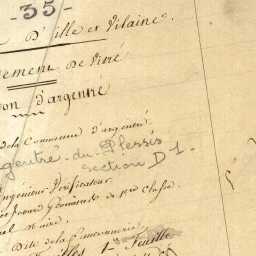 -35-
D'ille et Vilaine.
ement de Vitré
on d'argentré
de la Commune d'argentré
gentré-du-Plessis
section D 1.
ngénieur Vérificateur
Géomètre de 1re classe
Dite de la Cantonnerie
lles 1re Feuille